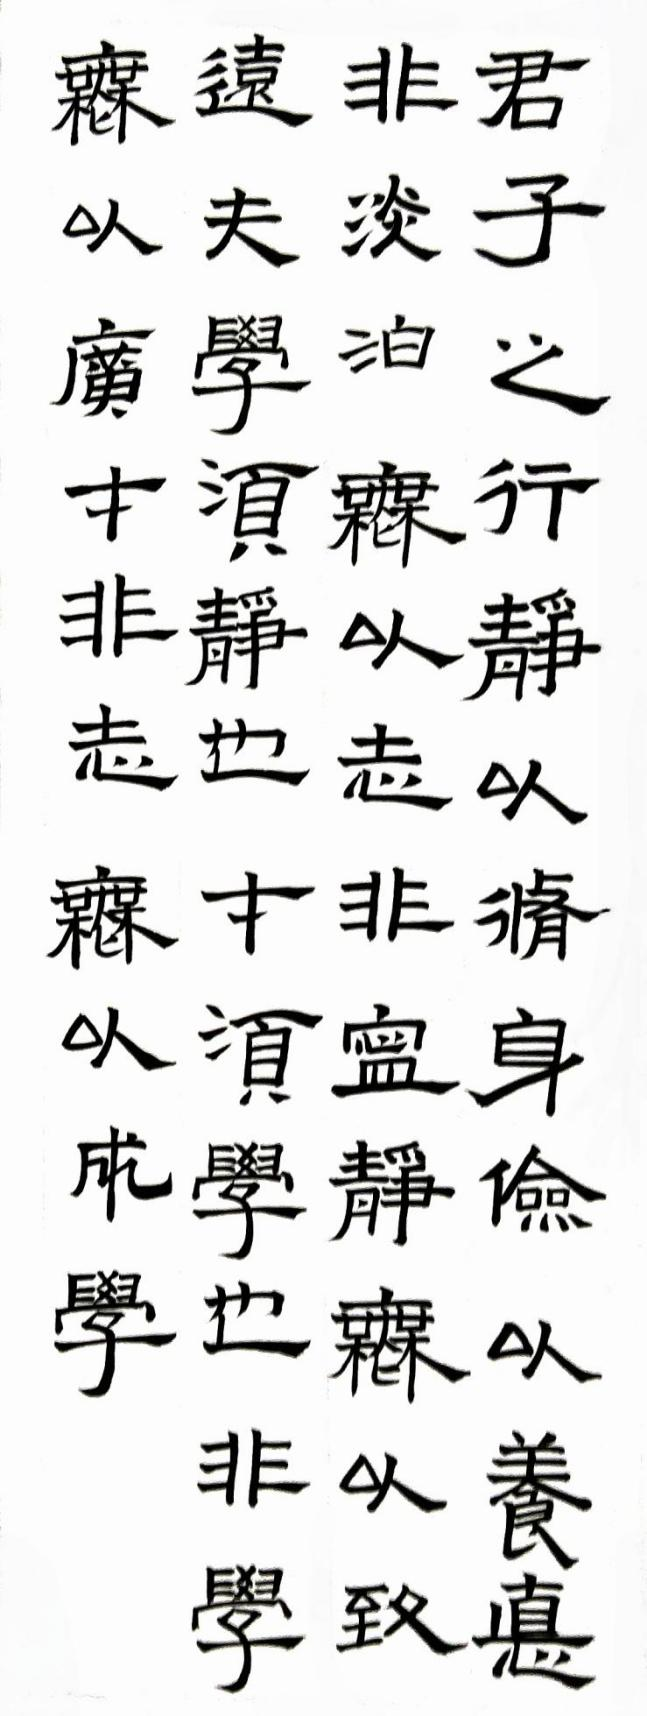 君子之行靜以脩身儉以養悳
非淡泊無以志非寧靜無以致
遠夫學須靜也才須學也非學
無以廣才非志無以成學